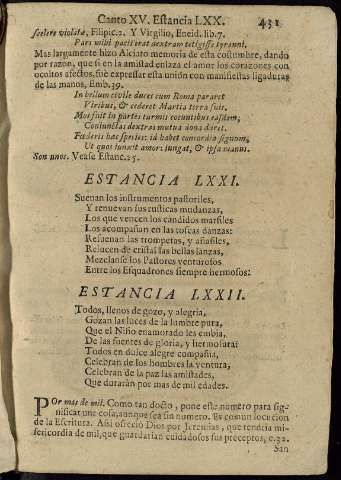 Canto XV. Estancia LXX. 431
scelere violatæ, Filipic. 2. Y Virgilio, Eneid. lib. 7.
Pars mihi pacis erat dextram tetigisse tyranni.
Mas largamente hizo Alciato memoria de esta costumbre, dando
por razon, que si en la amistad enlaza el amor los corazones con
ocultos afectos, fue expressar esta unión con manifiestas ligaduras
de las manos, Emb. 39.
In bellum civile duces cum Roma pararet
Viribus, & caderet Martia terra suis,
Mos fuit in partes turmis coeuntibus easdem,
Coniunctas dextras mutua dona dari.
Fœderis hæc species: id habet concordia signum,
Ut quos iungit amor: iungat, & ipsa manus.
Son unos. Vease Estanc. 25.
ESTANCIA LXXI.
Suenan los instrumentos pastoriles,
Y renuevan sus rusticas mudanzas,
Los que vencen los candidos marfiles
Los acompañan en las toscas danzas:
Resuenan las trompetas, y añafiles,
Relucen de cristal las bellas lanzas,
Mezclanse los Pastores venturosos
Entre los Esquadrones siempre hermosos.
ESTANCIA LXXII.
Todos, llenos de gozo, y alegria,
Gozan las luces de la lumbre pura,
Que el Niño enamorado les embia,
De las fuentes de gloria, y hermosura:
Todos en dulce alegre compañia,
Celebran de los hombres la ventura,
Celebran de la paz las amistades,
Que durarán por mas de mil edades.
POr mas de mil. Como tan docto, pone este numero para sig-
nificar una cosa, aunque sea sin numero. Es comun locucion
de la Escritura. Assi ofreció Dios por Jeremias, que tendria mi-
sericordia de mil, que guardarian cuidadosos sus preceptos, c. 32.
San